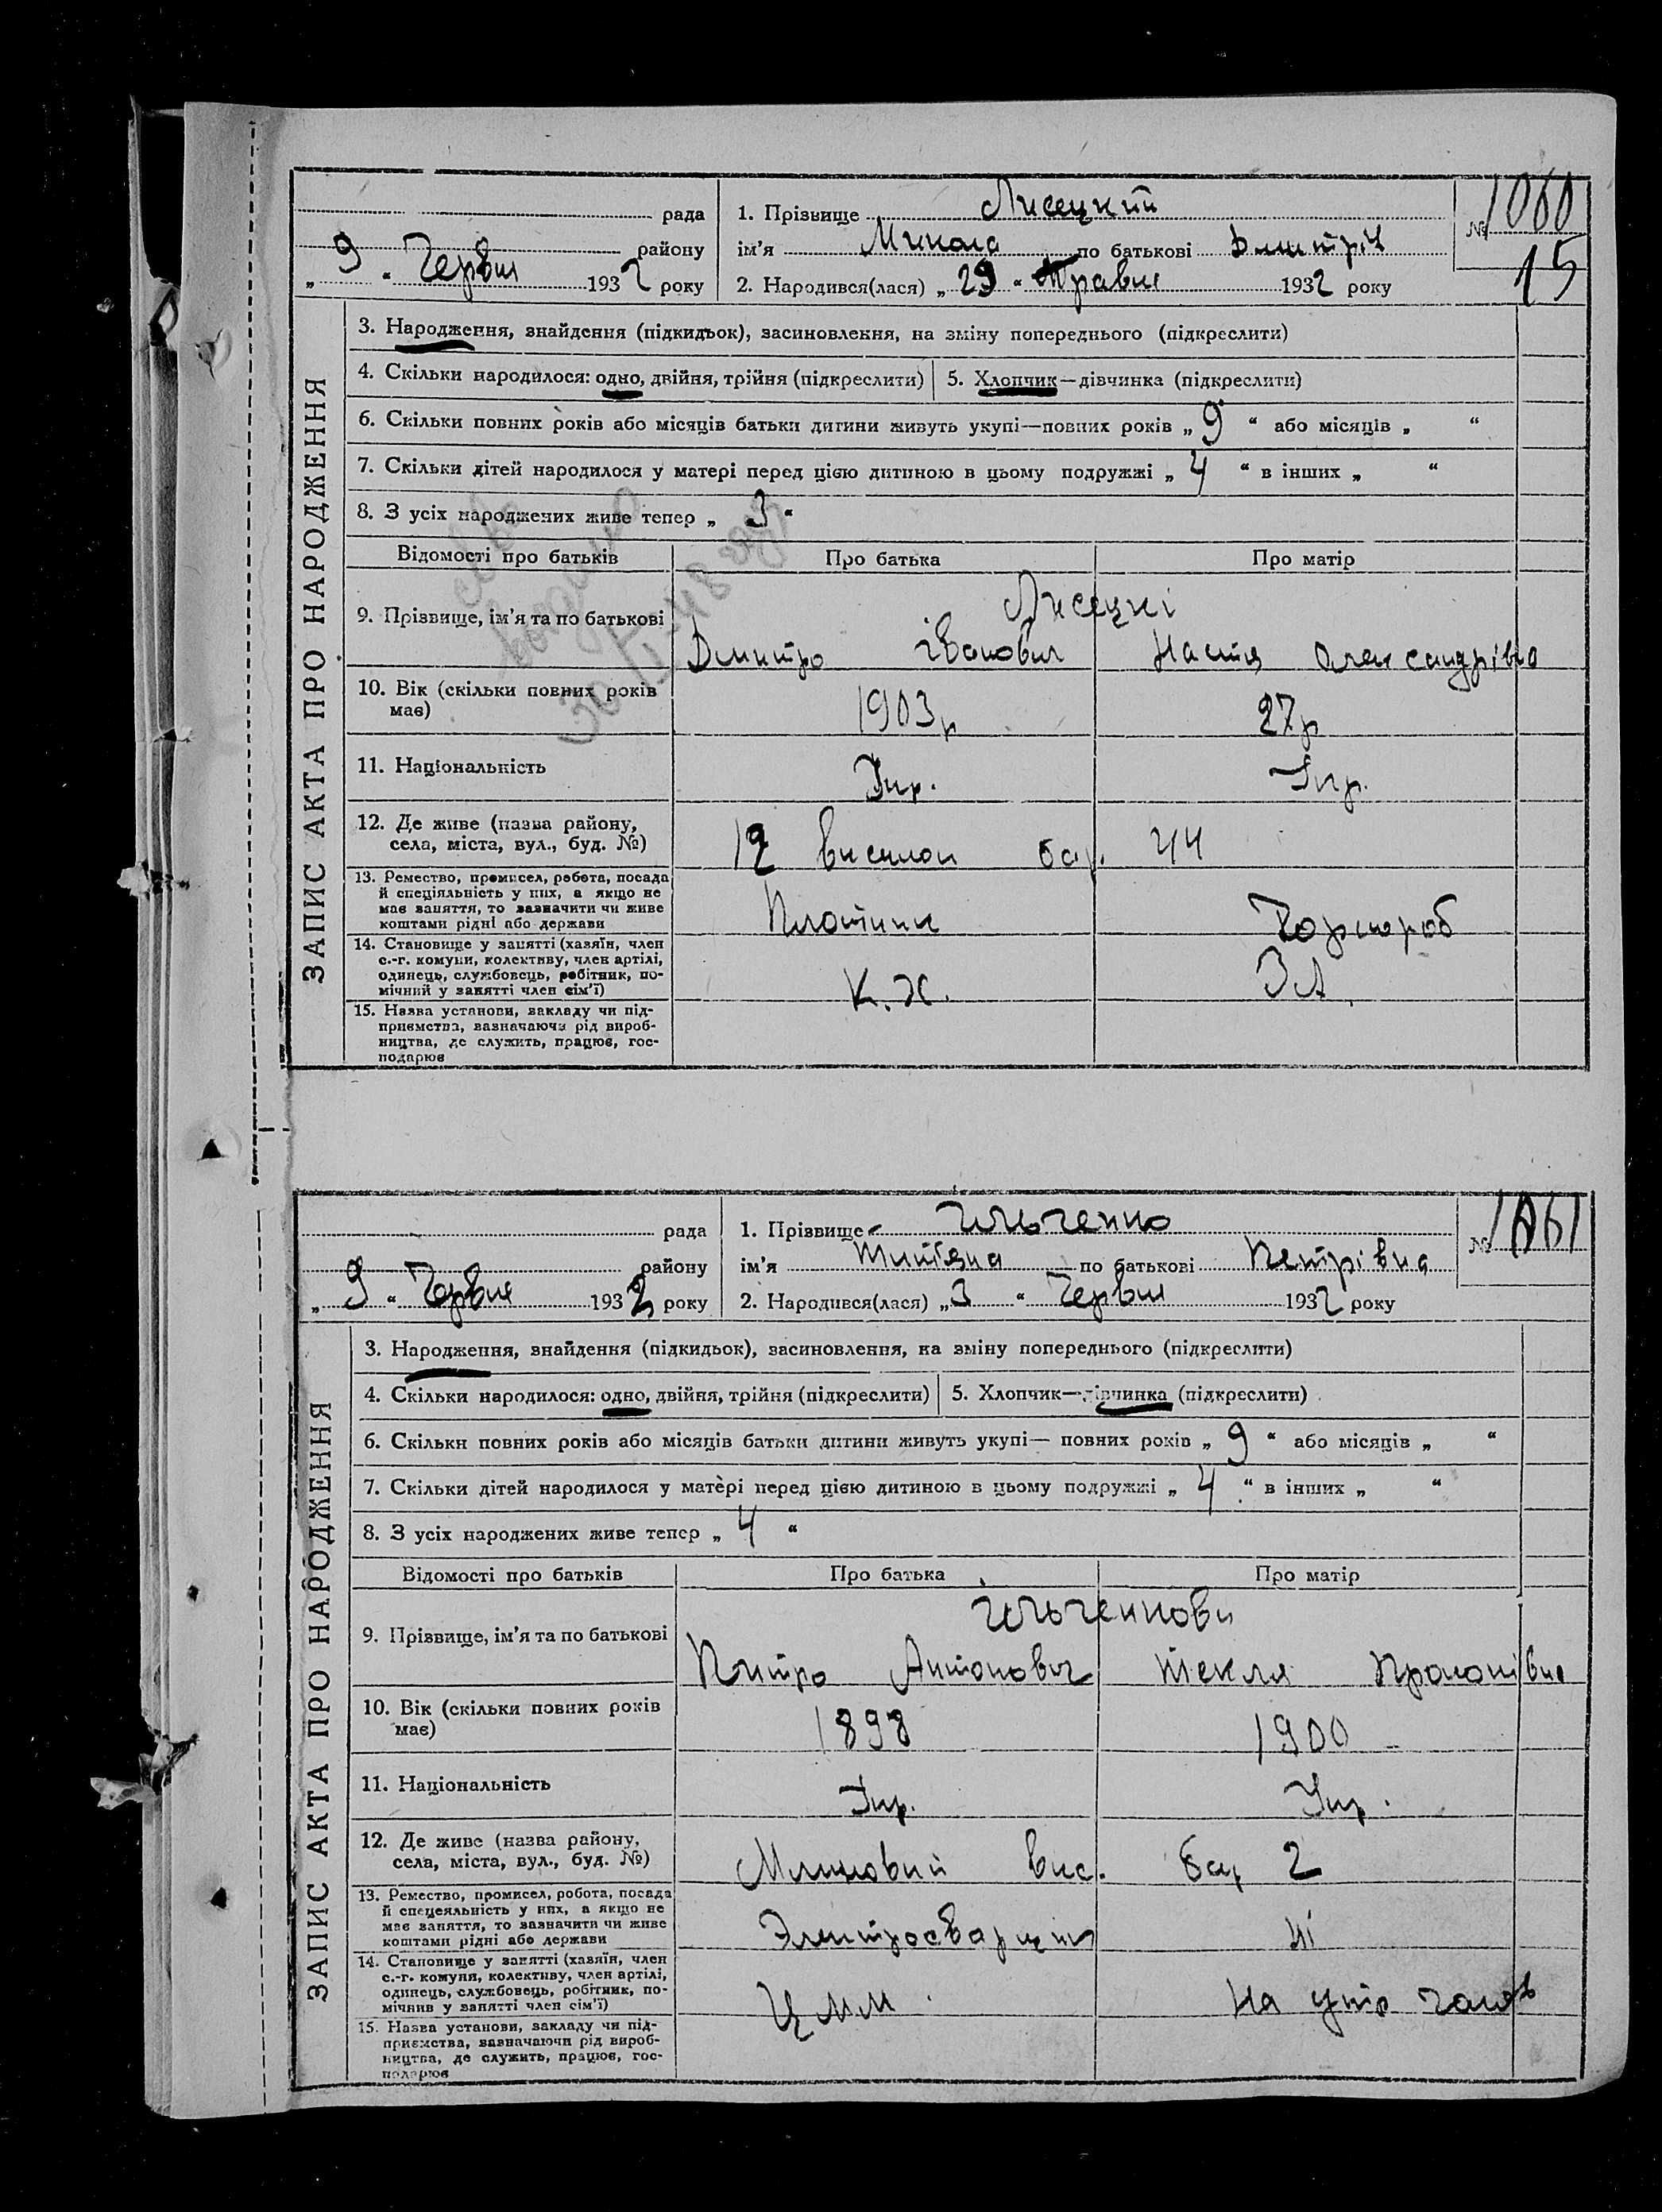 рада
1. Прізвище Лисецкий
№ 1060
району
ім'я Микола по батькові Дмитріч
15
„ 9 “ Червня 1932 року
2. Народився(лася) „ 29 “ Травня 1932 року
ЗАПИС АКТА ПРО НАРОДЖЕННЯ
3. Народження, знайдення (підкидьок), засиновлення, на зміну попереднього (підкреслити)
4. Скільки народилося: одно, двійня, трійня (підкреслити)
5. Хлопчик—дівчинка (підкреслити)
6. Скільки повних років або місяців батьки дитини живуть укупі—повних років „ 9 “ або місяців „ “
7. Скільки дітей народилося у матері перед цією дитиною в цьому подружжі „ 4 “ в інших „ “
8. З усіх народжених живе тепер „ 3 “
Відомості про батьків
Про батька
Про матір
9. Прізвище, ім'я та по батькові
Лисецкі
Дмитро Іванович
Настя Олександрівна
10. Вік (скільки повних років
має)
1903р
27р
11. Національність
Укр.
Укр.
12. Де живе (назва району,
села, міста, вул., буд. №)
12 виселок бар. 44
13. Ремество, промисел, робота, посада
й спеціяльність у них, а якщо не
має заняття, то зазначити чи живе
коштами рідні або держави
Плотник
Чорнороб
14. Становище у занятті (хазяїн, член
с.-г. комуни, колективу, член артілі,
одинець, службовець, робітник, по-
мічний у занятті член сім'ї)
К.Х.
ЗА
15. Назва установи, закладу чи під-
приємства, зазначаючи рід вироб-
ництва, де служить, працює, гос-
подарює
рада
1. Прізвище Ильченко
№ 1061
району
ім'я Титяна по батькові Петрівна
„ 9 “ Червня 1932 року
2. Народився(лася) „ 3 “ Червня 1932 року
ЗАПИС АКТА ПРО НАРОДЖЕННЯ
3. Народження, знайдення (підкидьок), засиновлення, на зміну попереднього (підкреслити)
4. Скільки народилося: одно, двійня, трійня (підкреслити)
5. Хлопчик—дівчинка (підкреслити)
6. Скільки повних років або місяців батьки дитини живуть укупі— повних років „ 9 “ або місяців „ “
7. Скільки дітей народилося у матері перед цією дитиною в цьому подружжі „ 4 “ в інших „ “
8. З усіх народжених живе тепер „ 4 “
Відомості про батьків
Про батька
Про матір
9. Прізвище, ім'я та по батькові
Ильченкови
Питро Антонович
Текля
10. Вік (скільки повних років
має)
1898
1900
11. Національність
Укр.
Укр.
12. Де живе (назва району,
села, міста, вул., буд. №)
Млиновий вис. бар 2
13. Ремество, промисел, робота, посада
й спецеяльність у них, а якщо не
має заняття, то зазначити чи живе
коштами рідні або держави
Электросварщик
ні
14. Становище у занятті (хазяїн, член
с.-г. комуни, колективу, член артілі,
одинець, службовець, робітник, по-
мічнив у занятті член сім'ї)
ЦММ
На утр
15. Назва установи, закладу чи під-
приємства, зазначаючи рід вироб-
ництва, де служить, працює, гос-
подарює